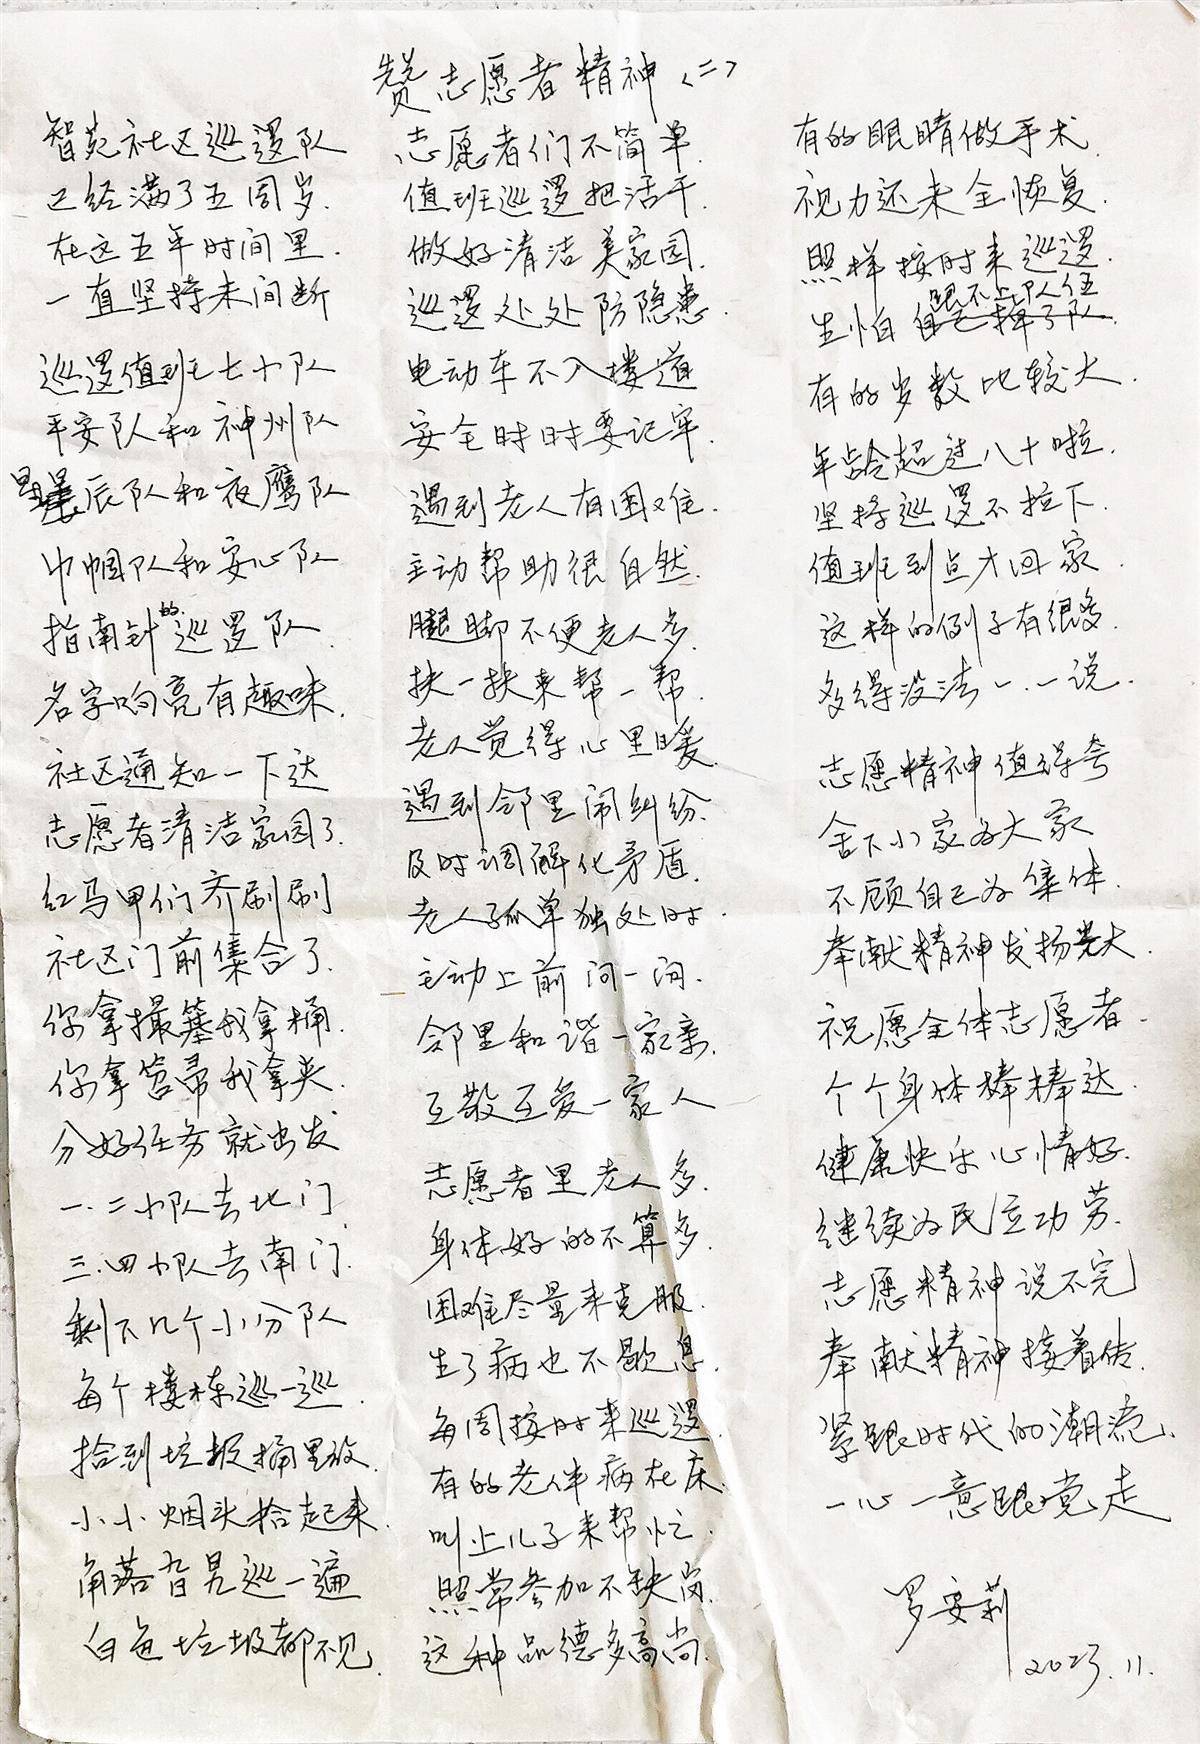 赞志愿者精神（二）
智苑社区巡逻队
已经满了五周岁.
在这五年时间里.
一直坚持未间断
巡逻值班七小队
平安队和神州队
星辰队和夜鹰队
巾帼队和安心队
指南针的巡逻队
名字响亮有趣味.
社区通知一下达
志愿者清洁家园了.
红马甲们齐刷刷
社区门前集合了.
你拿撮箕我拿桶.
你拿笤帚我拿夹.
分好任务就出发
一.二小队去北门
三.四小队去南门.
剩下几个小分队
每个楼栋巡一巡.
拾到垃圾桶里放.
小小烟头拾起来.
角落旮旯巡一遍
白色垃圾都不见.
志愿者们不简单.
值班巡逻把活干.
做好清洁美家园.
巡逻处处防隐患.
电动车不入楼道
安全时时要记牢.
遇到老人有困难.
主动帮助很自然.
腿脚不便老人多.
扶一扶来帮一帮.
老人觉得心里暖.
遇到邻里闹纠纷.
及时调解化矛盾.
老人孤单独处时.
主动上前问一问.
邻里和谐一家亲.
互敬互爱一家人
志愿者里老人多.
身体好的不算多.
困难尽量来克服.
生了病也不歇息.
每周按时来巡逻.
有的老伴病在床.
叫上儿子来帮忙.
照常参加不缺岗.
这种品德多高尚.
有的眼睛做手术.
视力还未全恢复.
照样按时来巡逻.
生怕自己跟不上队伍
有的岁数比较大.
年龄超过八十啦.
坚持巡逻不拉下.
值班到点才回家.
这样的例子有很多.
多得没法一.一说.
志愿精神值得夸
舍下小家为大家
不顾自己为集体.
奉献精神发扬光大.
祝愿全体志愿者.
个个身体棒棒达.
健康快乐心情好.
继续为民立功劳.
志愿精神说不完
奉献精神接着传.
紧跟时代的潮流.
一心一意跟党走
罗安莉
2023.11.